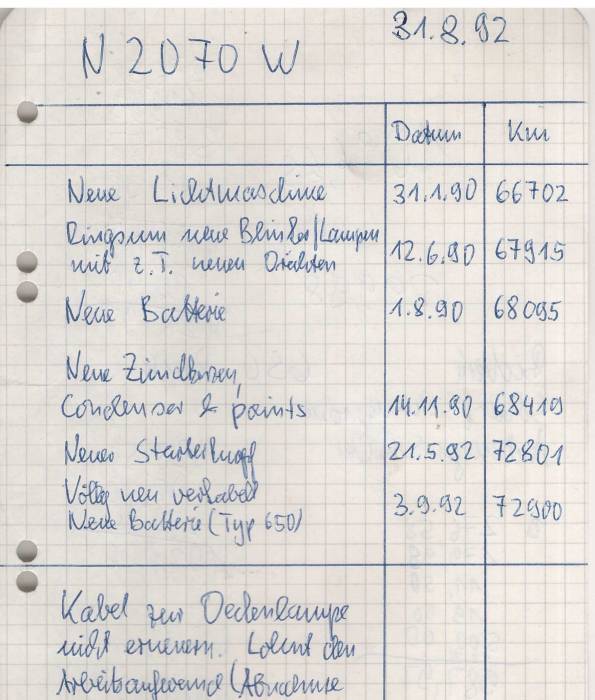 31.8.92
N 2070 W
Datum Km
Neue Lichtmaschine 31.1.90 66702
Ringsum neue Blinker/Lampen
mit z.T. neuen Drähten 12.6.90 67915
Neue Batterie 1.8.90 68095
Neue Zündkerzen,
Condenser & points 14.11.90 68419
Neuer Starterknopf 21.5.92 72801
Völlig neu verkabelt
Neue Batterie (Typ 650) 3.9.92 72900
Kabel zur Deckenlampe
nicht erneuern. Lohnt den
Arbeitsaufwand (Abnahme